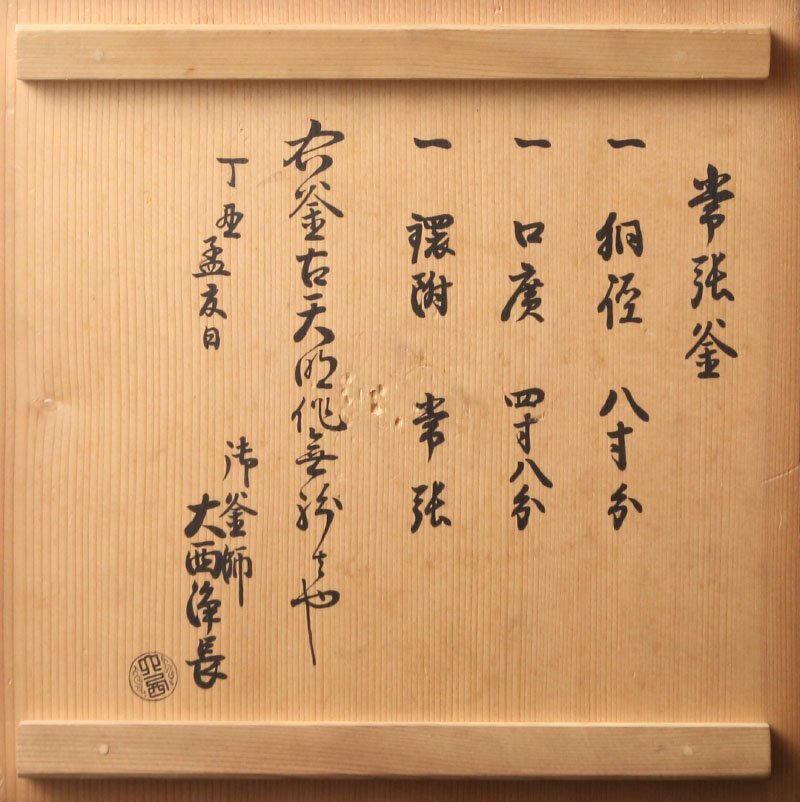 常張釜
一 胴径 八寸分
一 口廣 四寸八分
一 環附 常張
右釜古天明作無紛者也
丁丑孟夏日
御釜師
大西浄長
大西